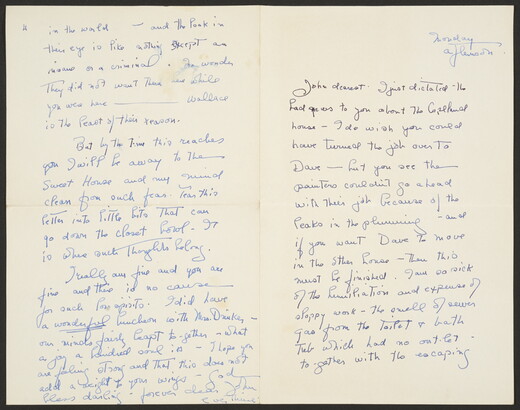 Monday
afternoon
John dearest. I just dictated the
bad news to you about the Copeland
house - I do wish you could
have turned the job over to
Dave - but you see the
painters couldn't go ahead
with their job because of the
leaks in the plumbing - and
if you want Dave to move
in the other house - then this
must be finished. I am so sick
of the humiliation and expense of
sloppy work - the smell of sewer
gas from the toilet & bath
tub which had no outlet
together with the escaping
4
in the world - and the look in
their eye is like nothing except an
insane or a criminal. No wonder
They did not want them while
you were here - Wallace
is the least of their reason.
But by the time this reaches
you I will be away to the
Sweet House and my mind
clean from such fear. Tear this
letter into little bits that can
go down the closet bowl - It
is where such thoughts belong.
I really am fine and you are
fine and there is no cause
for such . I did have
a wonderful luncheon with Mrs. Drinker -
our minds fairly leapt together - what
a joy a kindred soul is - I hope you
are feeling strong and that this does not
add a weight to your wings. God
bless darling - forever dear John